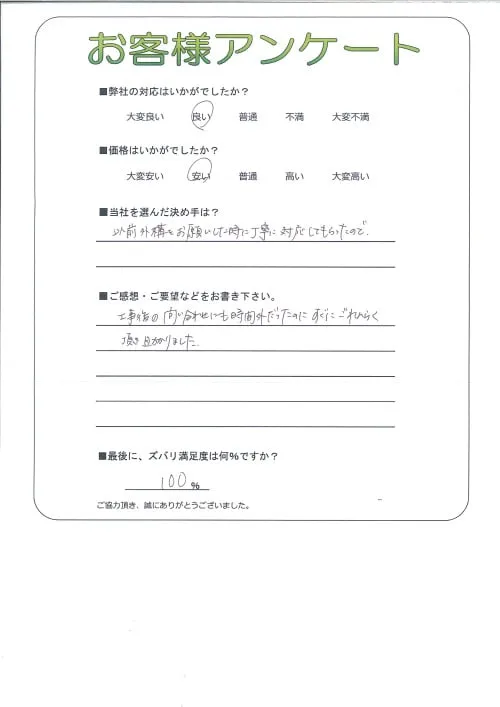 お客様アンケート
■弊社の対応はいかがでしたか？
大変良い 良い 普通 不満 大変不満
■価格はいかがでしたか？
大変安い 安い 普通 高い 大変高い
■当社を選んだ決め手は？
以前外構をお願いした時に丁寧に対応してもらったので、
■ご感想・ご要望などをお書き下さい。
工事後の問い合わせにも時間外だったのにすぐにごれんらく
頂き助かりました。
■最後に、ズバリ満足度は何%ですか？
100 %
ご協力頂き、誠にありがとうございました。